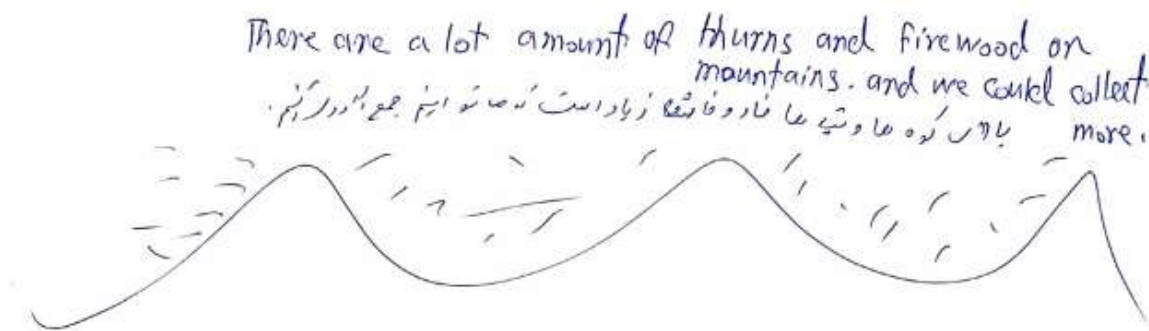 There are a lot amount of thurns and firewood on
mountains. and we could collect
more.
بالای کوه ها و تپه ها خار و خاشه زیاد است که ما تو انیم جمع آوری کنیم.